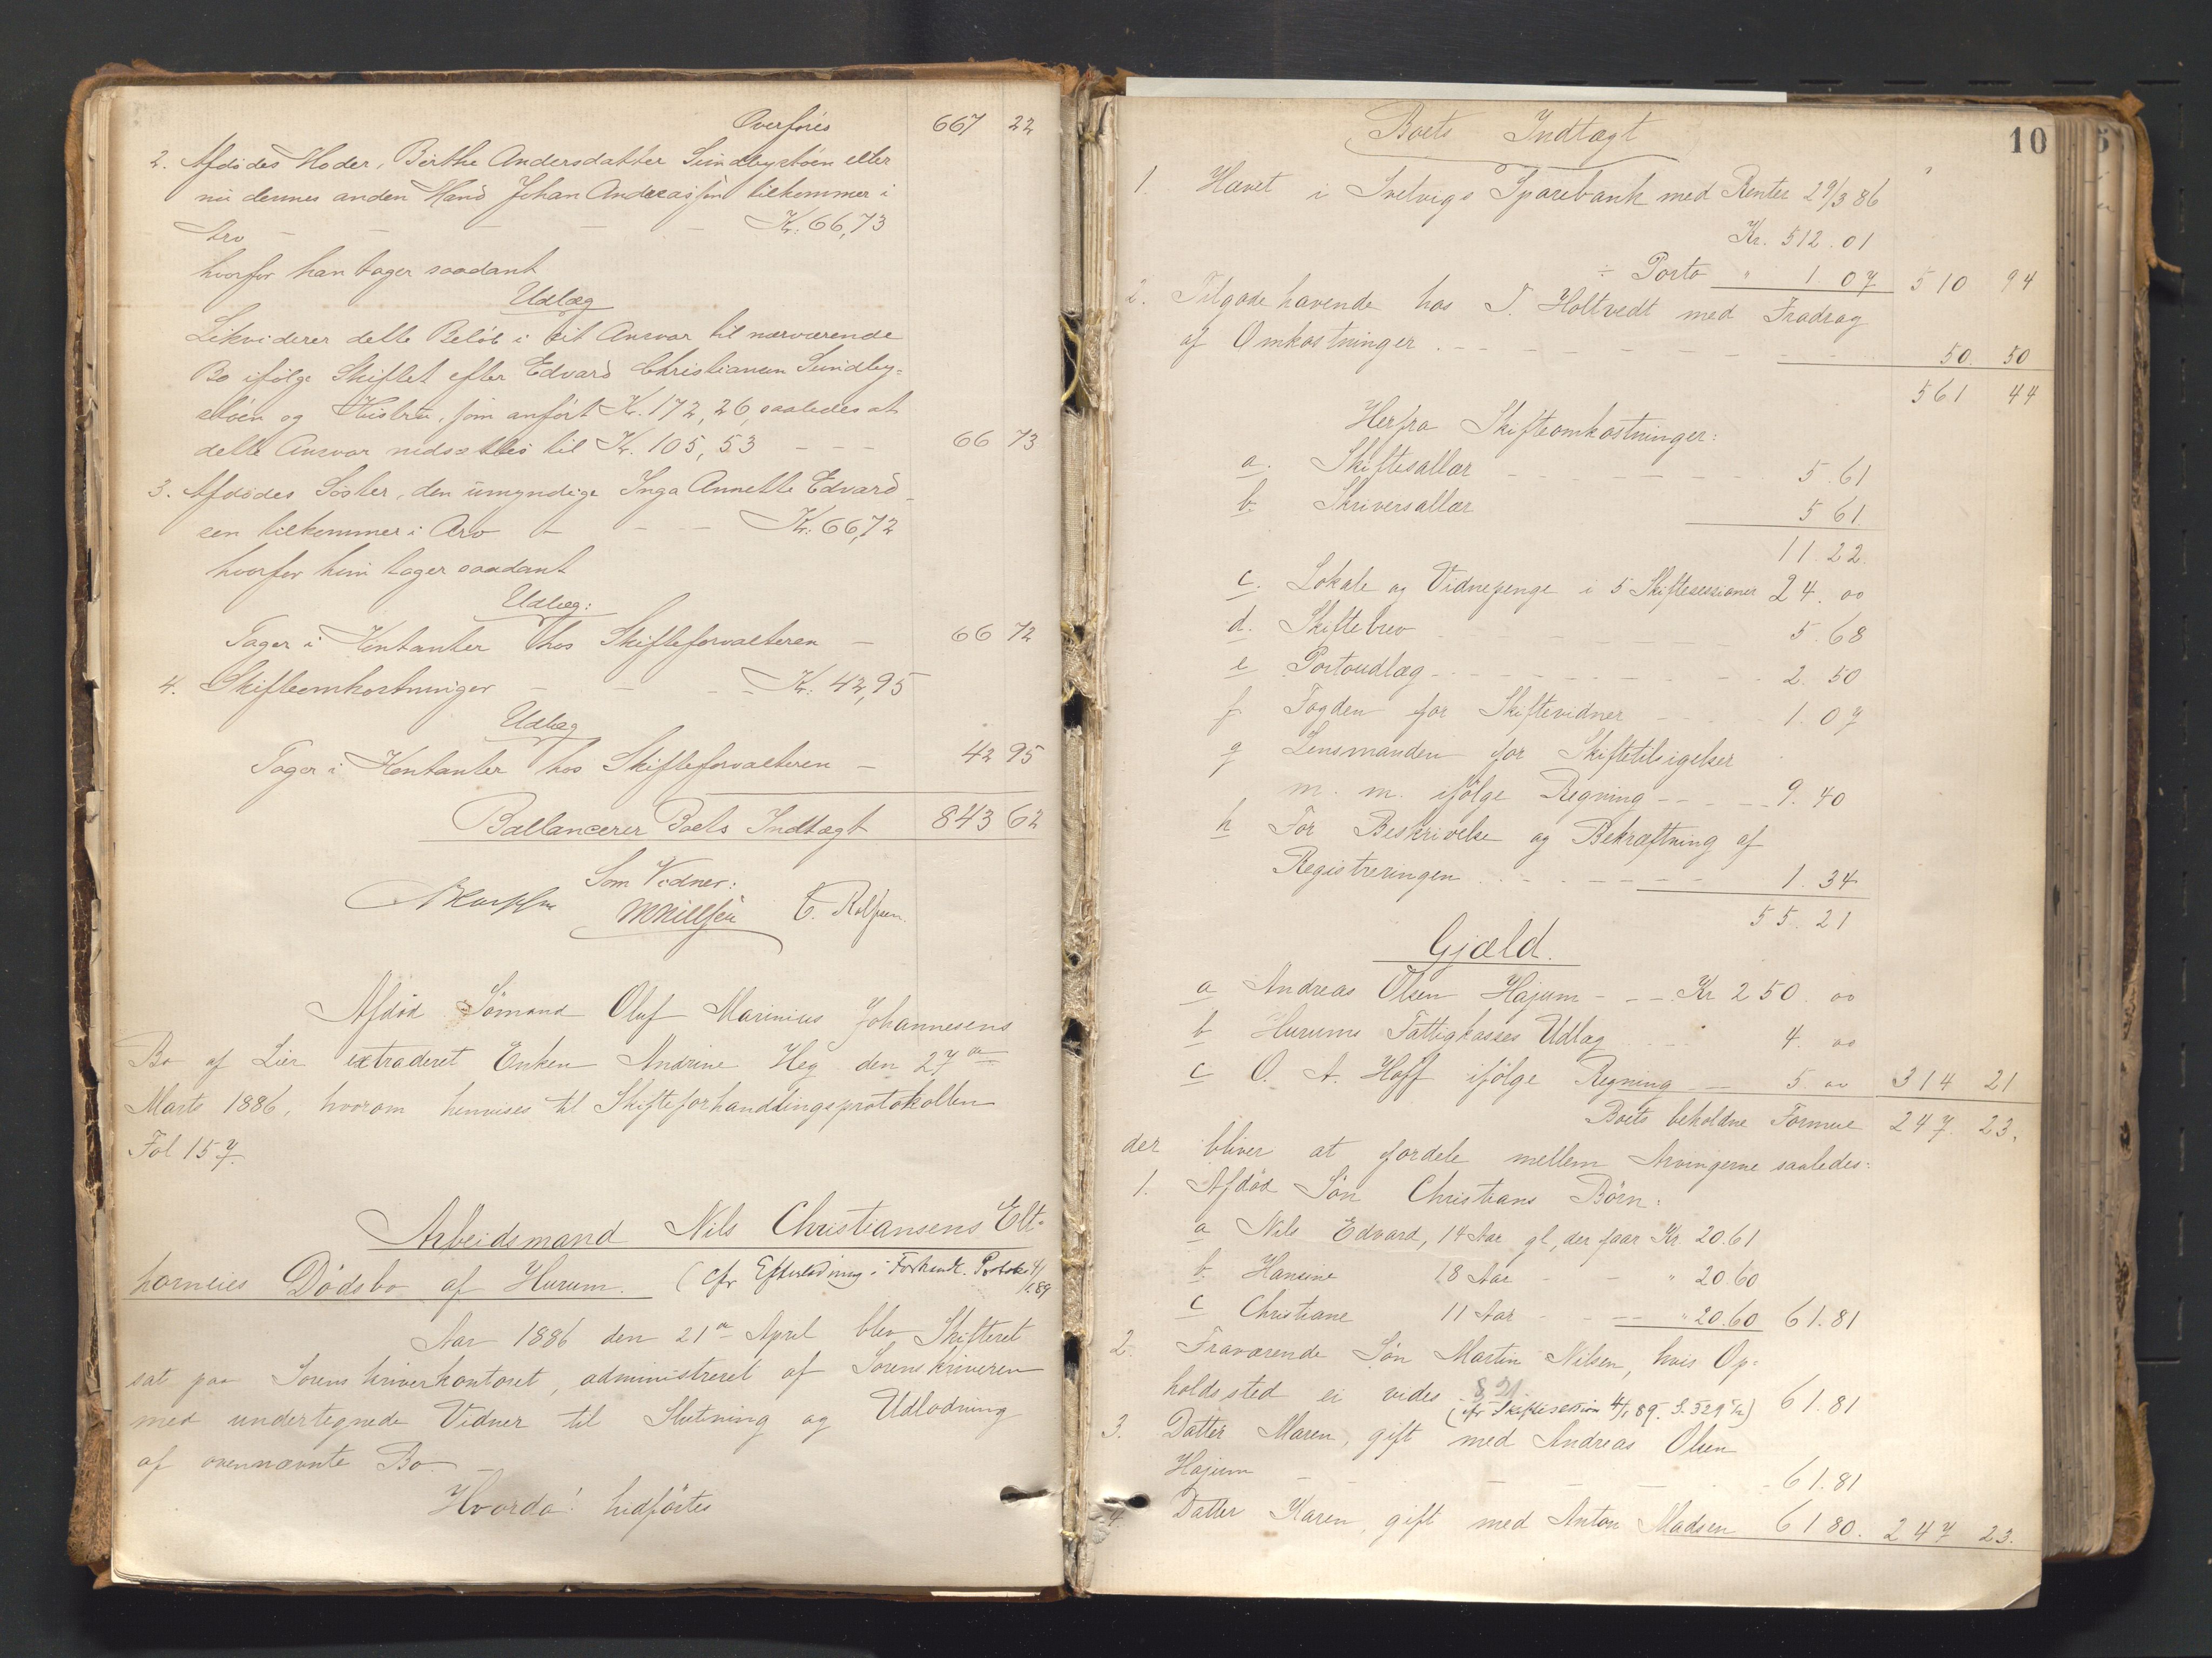 Overføres 667 22
2. Afdødes Moder, Berthe Andersdatter Sundbystøen eller
nu dennes anden Mand Johan Andreassen tilkommer i
Arv - - - - - Kr. 66,73
hvorfor han tager saadant
Udlæg
Likviderer dette Beløb i sit Ansvar til nærværende
Bo ifølge Skiftet efter Edvard Christiansen Sundby-
støen og Hustru, som anført Kr. 172,26, saaledes at
dette Ansvar nedsættes til Kr. 105,53 - - - 66 73
3. Afdødes Søster, den umyndige Inga Annette Edvard-
sen tilkommer i Arv - - - Kr. 66,72
hvorfor hun tager saadant
Udlæg:
Tager i Kontanter hos Skifteforvalteren - 66 72
4. Skifteomkostninger - - - Kr. 42,95
Udlæg
Tager i Kontanter hos Skifteforvalteren - 42 95
Ballancerer Boets Indtægt 843 62
Som Vidner:
M Nillsen C. Rolfsen.
Afdød Sømand Oluf Marinius Johannesens
Bo af Lier extraderet Enken Andrine Heg den 27de
Marts 1886, hvorom henvises til Skifteforhandlingsprotokollen
Fol 157.
Arbeidsmand Nils Christiansens Elt-
horneies Dødsbo af Hurum. (cfr Efterlodning i Forhandl. Protok 4/1 89
Aar 1886 den 21de April blev Skifteret
sat paa Sorenskriverkontoret, administreret af Sorenskriveren
med undertegnede Vidner til Slutning og Udlodning
af ovennævnte Bo. -
Hvorda! hidførtes
10
Boets Indtægt
1. Hævet i Svelvigs Sparebank med Renter 29/3 86
Kr. 512.01
÷ Porto " 1 07 510 94
2. Tilgodehavende hos T. Holtvedt med Fradrag
af Omkostninger - - - - - - - 50. 50
561 44
Herfra Skifteomkostninger:
a. Skiftesallær - - - - - - 5.61
b. Skriversallær 5 61
11.22.
c. Lokale og Vidnepenge i 5 Skiftesessioner 24.00
d. Skiftebrev - - - - - 5.68
e Portoudlæg - - - - - - - 2.50
f. Fogden for Skiftevidner - - - - 1.07
g Lensmanden for Skiftetilsigelser
m. m. ifølge Regning - - - - 9.40
h For Beskrivelse og Bekræftning af
Registreringen - - - - - 1.34
55.21
Gjæld.
a Andreas Olsen Hajum - - - Kr 250.00
b Hurums Fattigkasses Udlæg - - - 4.00
c O. A. Hoff ifølge Regning - - 5.00 314 21
Boets beholdne Formue 247. 23.
der bliver at fordele mellem Arvingerne saaledes:
1. Afdød Søn Christians Børn:
a Nils Edvard, 14 Aar gl, der faar Kr. 20.61
b. Hansine 18 Aar - - " 20.60
c Christiane 11 Aar - - - " 20.60 61.81
2. Fraværende Søn Martin Nilsen, hvis Op-
holdssted ei vides (cfr Skiftesession 4/1 89. S. 329) 61.81
3. Datter Maren, gift med Andreas Olsen
Hajum - - - - - - 61.81
4. Datter Karen, gift med Anton Madsen 61 80. 247 23.